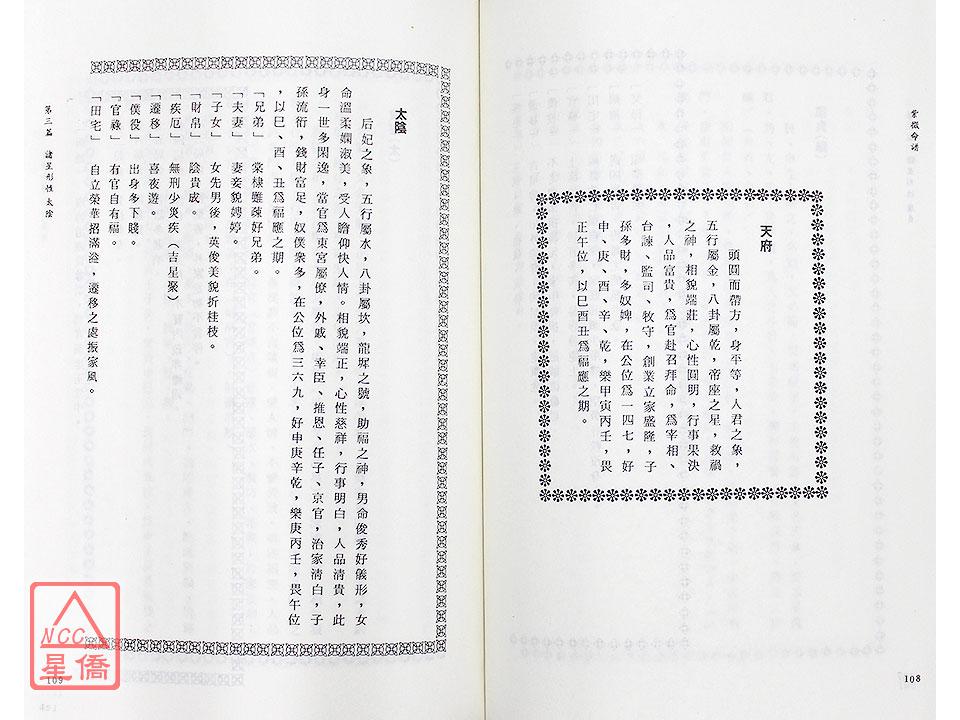 紫微命譜
天府
頭圓而帶方，身平等，人君之象，
五行屬金，八卦屬乾，帝座之星，救禍
之神，相貌端莊，心性圓明，行事果決
，人品富貴，爲官赴召拜命，爲宰相、
台諫、監司、牧守，創業立家盛隆，子
孫多財，多奴婢，在公位爲一四七，好
申、庚、酉、辛、乾，樂甲寅丙壬，畏
正午位，以巳酉丑爲福應之期。
108
太陰
后妃之象，五行屬水，八卦屬坎，龍墀之號，助福之神，男命俊秀好儀形，女
命溫柔嫻淑美，受人瞻仰快人情。相貌端正，心性慈祥，行事明白，人品清貴，此
身一世多閑逸，當官爲東宮屬僚，外戚、幸臣、推恩、任子、京官，治家清白，子
孫流衍，錢財富足，奴僕衆多，在公位爲三六九，好申庚辛乾，樂庚丙壬，畏午位
，以巳、酉、丑爲福應之期。
「兄弟」　棠棣雖疎好兄弟。
「夫妻」　妻妾貌娉婷。
「子女」　女先男後，英俊美貌折桂枝。
「財帛」　陰貴成。
「疾厄」　無刑少災疾（吉星聚）
「遷移」　喜夜遊。
「僕役」　出身多下賤。
「官祿」　有官自有福。
「田宅」　自立榮華招滿溢，遷移之處振家風。
第三篇　諸星形性　太陰
109
NCC
星僑